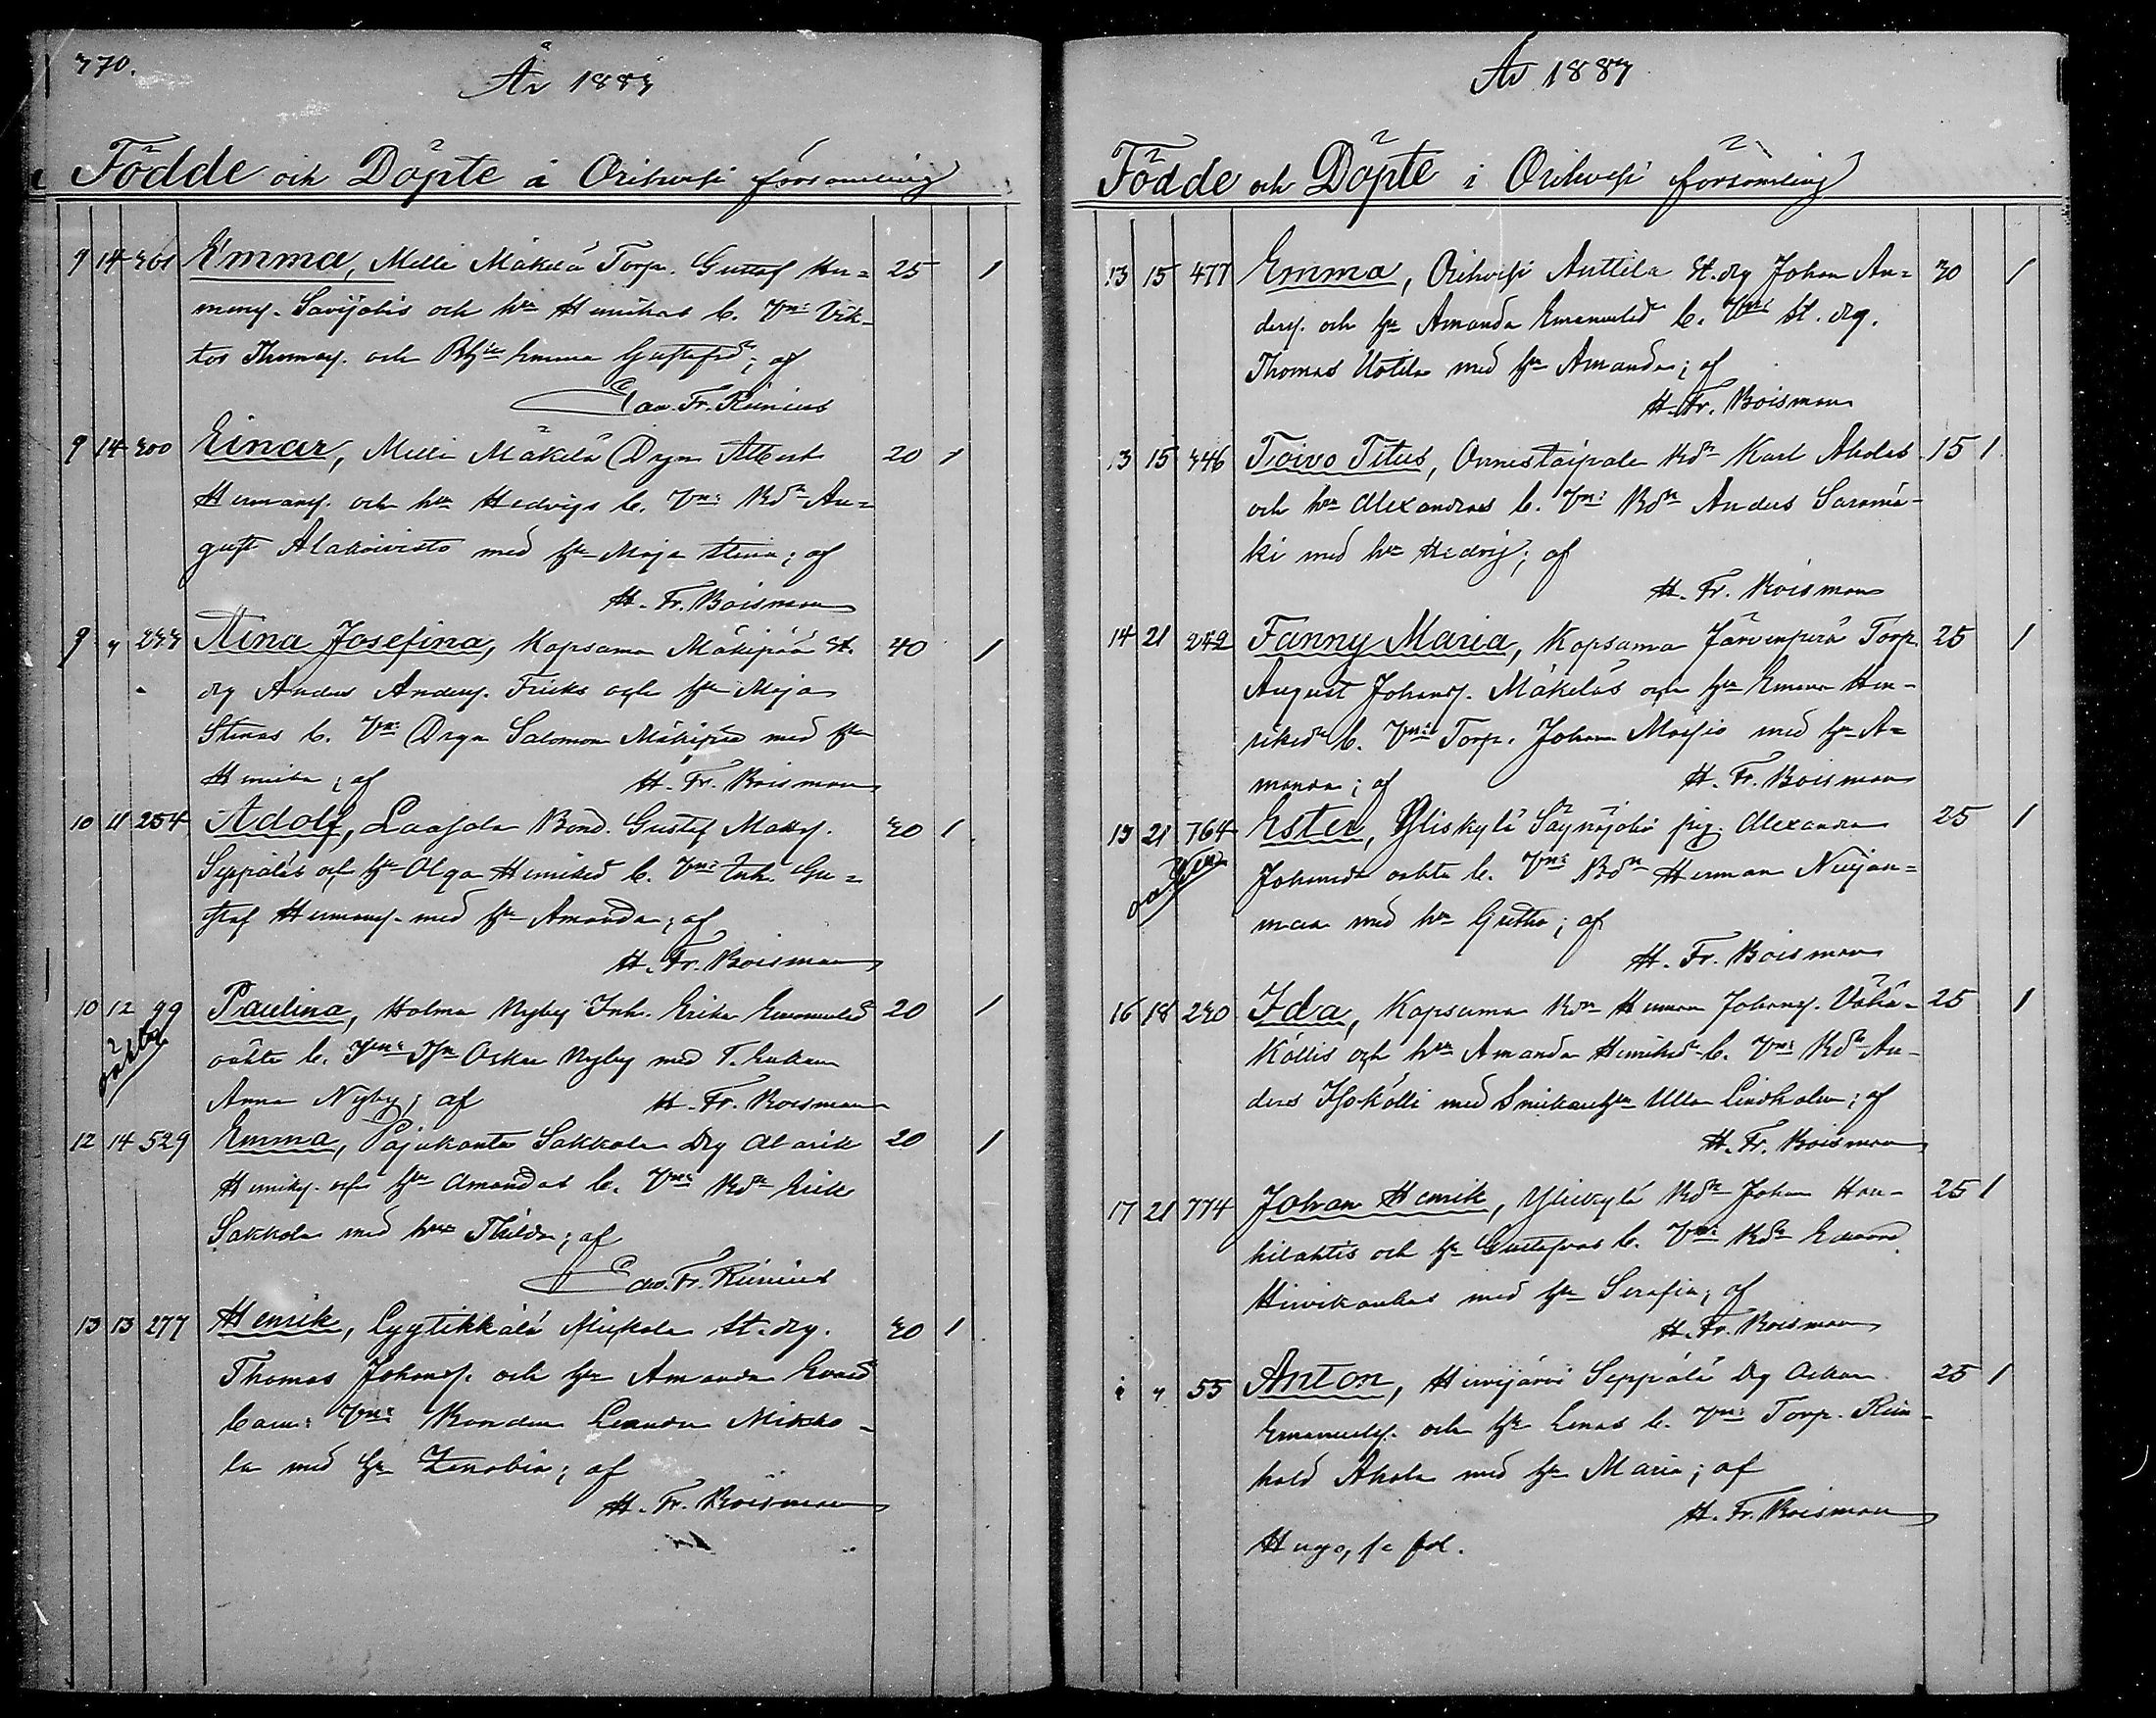 370.
År 1887
Födde och Döpte i Orihvesi församling
9 14 361 Emma, Melli Mäkelä Torp. Gustaf Her= 25 1
manss. Savijokis och hu Henrikas b. Vn: Vik=
tor Thomass. och Emma Gustafsdr; af
Edv. Fr. Reinius
9 14 300 Einar, Melli Mäkelä Drgn Albert 20 1
Hermanss. och hu Hedvigs b. Vn: Bdn Au=
gust Alakoivisto med hu Maja Stina; af
H. Fr. Boisman
9 " 233 Aina Josefina, Kopsamo Mäkipää St. 40 1
drg Anders Anderss. Friiks och hu Maja
Stinas b. Vn: Drgn Salomon Mäkipää med hu
Henrika; af H. Fr. Boisman
10 11 254 Adolf, Laasola Bond. Gustaf Matts. 30 1
Seppäläs och hu Olga Henriksd b. Vn: Inh. Gu=
staf Hermanss. med hu Amanda; af
H. Fr. Boisman
10 12 99 Paulina, Holma Nyby Inh. Erika Emanuelsd 20 1
oäkta
oäkta b. Vn: Oskar Nyby med
Anna Nyby; af H. Fr. Boisman
12 14 529 Emma, Pajukanta Sakkola Drg Alarik 20 1
Henriks. och hu Amandas b. Vn: Bdn Erik
Sakkola med hu Thilda; af
Edv. Fr. Reinius
13 13 277 Henrik, Lyytikkälä Mikkola St. drg. 30 1
Thomas Johanss. och hu Amanda Evasd
barn: Vn: Bonden Leander Mikko=
la med hu Zenobia; af
H. Fr. Boisman
År 1887
Födde och Döpte i Orihvesi församling
13 15 477 Emma, Orihvesi Anttila St. drg Johan An= 30 1
derss. och hu Amanda Emanuelsdr b. Vn: St. drg.
Thomas Uotila med hu Amanda; af
H. Fr. Boisman
13 15 346 Toivo Titus, Onnistaipale Bdn Karl Aholas 15 1
och hu Alexandras b. Vn: Bdn Anders Saramä=
ki med hu Hedvig; af
H. Fr. Boisman
14 21 242 Fanny Maria, Kopsamo Järvenperä Torp. 25 1
August Johanss. Mäkeläs och hu Emma Hen=
riksdr b. Vn: Torp. Johan Moisio med hu A=
manda; af H. Fr. Boisman
15 21 764 Ester, Yliskylä Säynäjoki pig. Alexandra 25 1
oäkta
Johansdr oäkta b. Vn: Bdn Herman Niijan=
maa med hu Gretha; af
H. Fr. Boisman
16 18 230 Ida, Kopsamo Bdn Herman Johanss. Vähä= 25 1
Köllis och hu Amanda Henriksdr b. Vn: Bdn An=
ders Isokölli med Ulla Lindholm; af
H. Fr. Boisman
17 21 774 Johan Henrik, Yliskylä Bdn Johan Hon= 25 1
kilahtis och hu Gustafvas b. Vn: Bdn Edvard
Hirvikankas med hu Serafia; af
H. Fr. Boisman
" " 55 Anton, Hirvijärvi Seppälä Drg Oskar 25 1
Emanuelss. och hu Lenas b. Vn: Torp. Rein=
hold Ahola med hu Maria; af
H. Fr. Boisman
Hugo, se fol.